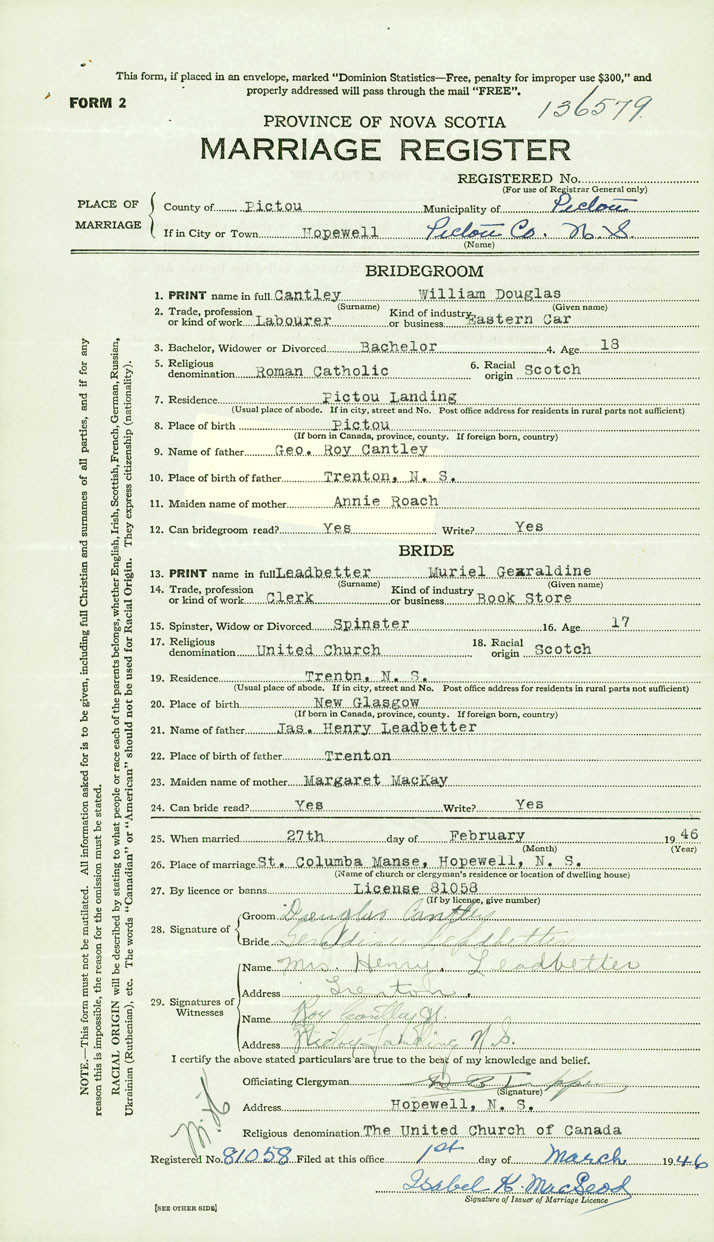 This form, if placed in an envelope, marked “Dominion Statistics—Free, penalty for improper use $300,” and
properly addressed will pass through the mail “FREE”.
FORM 2
136579
PROVINCE OF NOVA SCOTIA
MARRIAGE REGISTER
REGISTERED No.
(For use of Registrar General only)
PLACE OF MARRIAGE
County of Pictou Municipality of Pictou
If in City or Town Hopewell Pictou Co. N. S.
(Name)
BRIDEGROOM
1. PRINT name in full Cantley William Douglas
(Surname) (Given name)
2. Trade, profession or kind of work Labourer Kind of industry or business Eastern Car
3. Bachelor, Widower or Divorced Bachelor 4. Age 18
5. Religious denomination Roman Catholic 6. Racial origin Scotch
7. Residence Pictou Landing
(Usual place of abode. If in city, street and No. Post office address for residents in rural parts not sufficient)
8. Place of birth Pictou
(If born in Canada, province, county. If foreign born, country)
9. Name of father Geo. Roy Cantley
10. Place of birth of father Trenton, N. S.
11. Maiden name of mother Annie Roach
12. Can bridegroom read? Yes Write? Yes
BRIDE
13. PRINT name in full Leadbetter Muriel Geraldine
(Surname) (Given name)
14. Trade, profession or kind of work Clerk Kind of industry or business Book Store
15. Spinster, Widow or Divorced Spinster 16. Age 17
17. Religious denomination United Church 18. Racial origin Scotch
19. Residence Trenton, N. S.
(Usual place of abode. If in city, street and No. Post office address for residents in rural parts not sufficient)
20. Place of birth New Glasgow
(If born in Canada, province, county. If foreign born, country)
21. Name of father Jas. Henry Leadbetter
22. Place of birth of father Trenton
23. Maiden name of mother Margaret MacKay
24. Can bride read? Yes Write? Yes
25. When married 27th day of February 19 46
(Month) (Year)
26. Place of marriage St. Columba Manse, Hopewell, N. S.
(Name of church or clergyman's residence or location of dwelling house)
27. By licence or banns License 81058
(If by licence, give number)
28. Signature of
Groom Douglas Cantley
Bride Geraldine Leadbetter
29. Signatures of Witnesses
Name Mrs Henry. Leadbetter
Address Trenton.
Name Roy Cantley
Address Landing N.S.
I certify the above stated particulars are true to the best of my knowledge and belief.
Officiating Clergyman
(Signature)
Address Hopewell, N. S.
Religious denomination The United Church of Canada
Registered No. 81058 Filed at this office 1st day of March 1946
Isabel K. MacLeod
Signature of Issuer of Marriage Licence
[SEE OTHER SIDE]
NOTE.—This form must not be mutilated. All information asked for is to be given, including full Christian and surnames of all parties, and if for any
reason this is impossible, the reason for the omission must be stated.
RACIAL ORIGIN will be described by stating to what people or race each of the parents belongs, whether English, Irish, Scottish, French, German, Russian,
Ukrainian (Ruthenian), etc. The words “Canadian” or “American” should not be used for Racial Origin. They express citizenship (nationality).